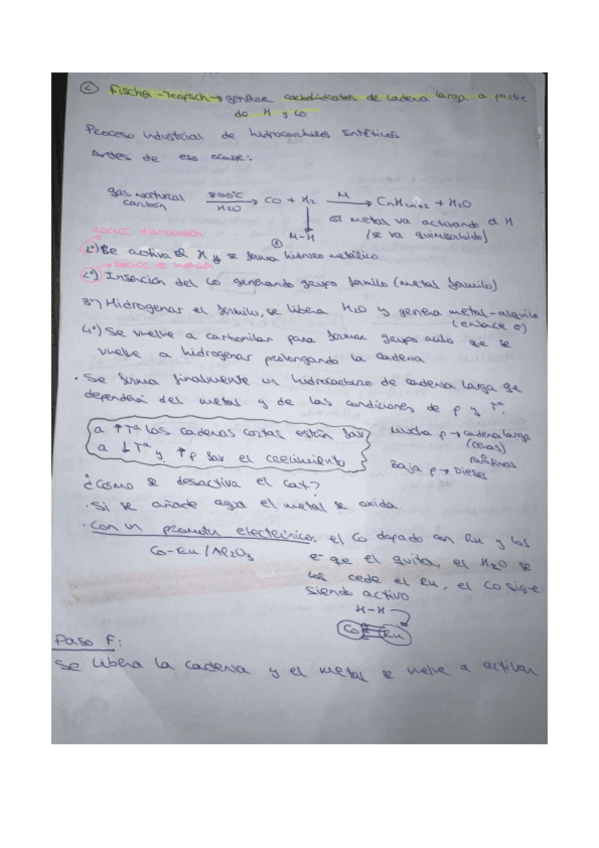 ② Fischer-Tropsch → generar carbohidratos de cadena larga a partir
de H y CO
Proceso industrial de hidrocarburos sintéticos
Antes de eso ocurre:
gas natural carbón 800°C H2O CO + H2 M CnH2n+2 + H2O
M-H
①
el metal va activando el H
(se va quimisorbido)
1º) Se activa el H y se forma hidruro metálico
2º) Inserción del CO generando grupo formilo (metal formilo)
3º) Hidrogenar el formilo, se libera H2O y genera metal-alquilo
(enlace σ)
4º) Se vuelve a carbonilar para formar grupo acilo que se
vuelve a hidrogenar prolongando la cadena
· Se forma finalmente un hidrocarburo de cadena larga que
dependerá del metal y de las condiciones de p y Tª.
a ↑Tª las cadenas cortas están fav
a ↓Tª y ↑p fav el crecimiento
Mucha p → cadena larga
(ceras)
parafinas
Baja p → Diesel
¿Cómo se desactiva el cat?
· Si se añade agua el metal se oxida.
· Con un promotor electrónico: el Co dopado con Ru y los
Co-Ru/Al2O3
e- que el quita, el H2O se
los cede el Ru, el Co sigue
siendo activo
H-H
Co Ru
Paso F:
Se libera la cadena y el metal se vuelve a activar